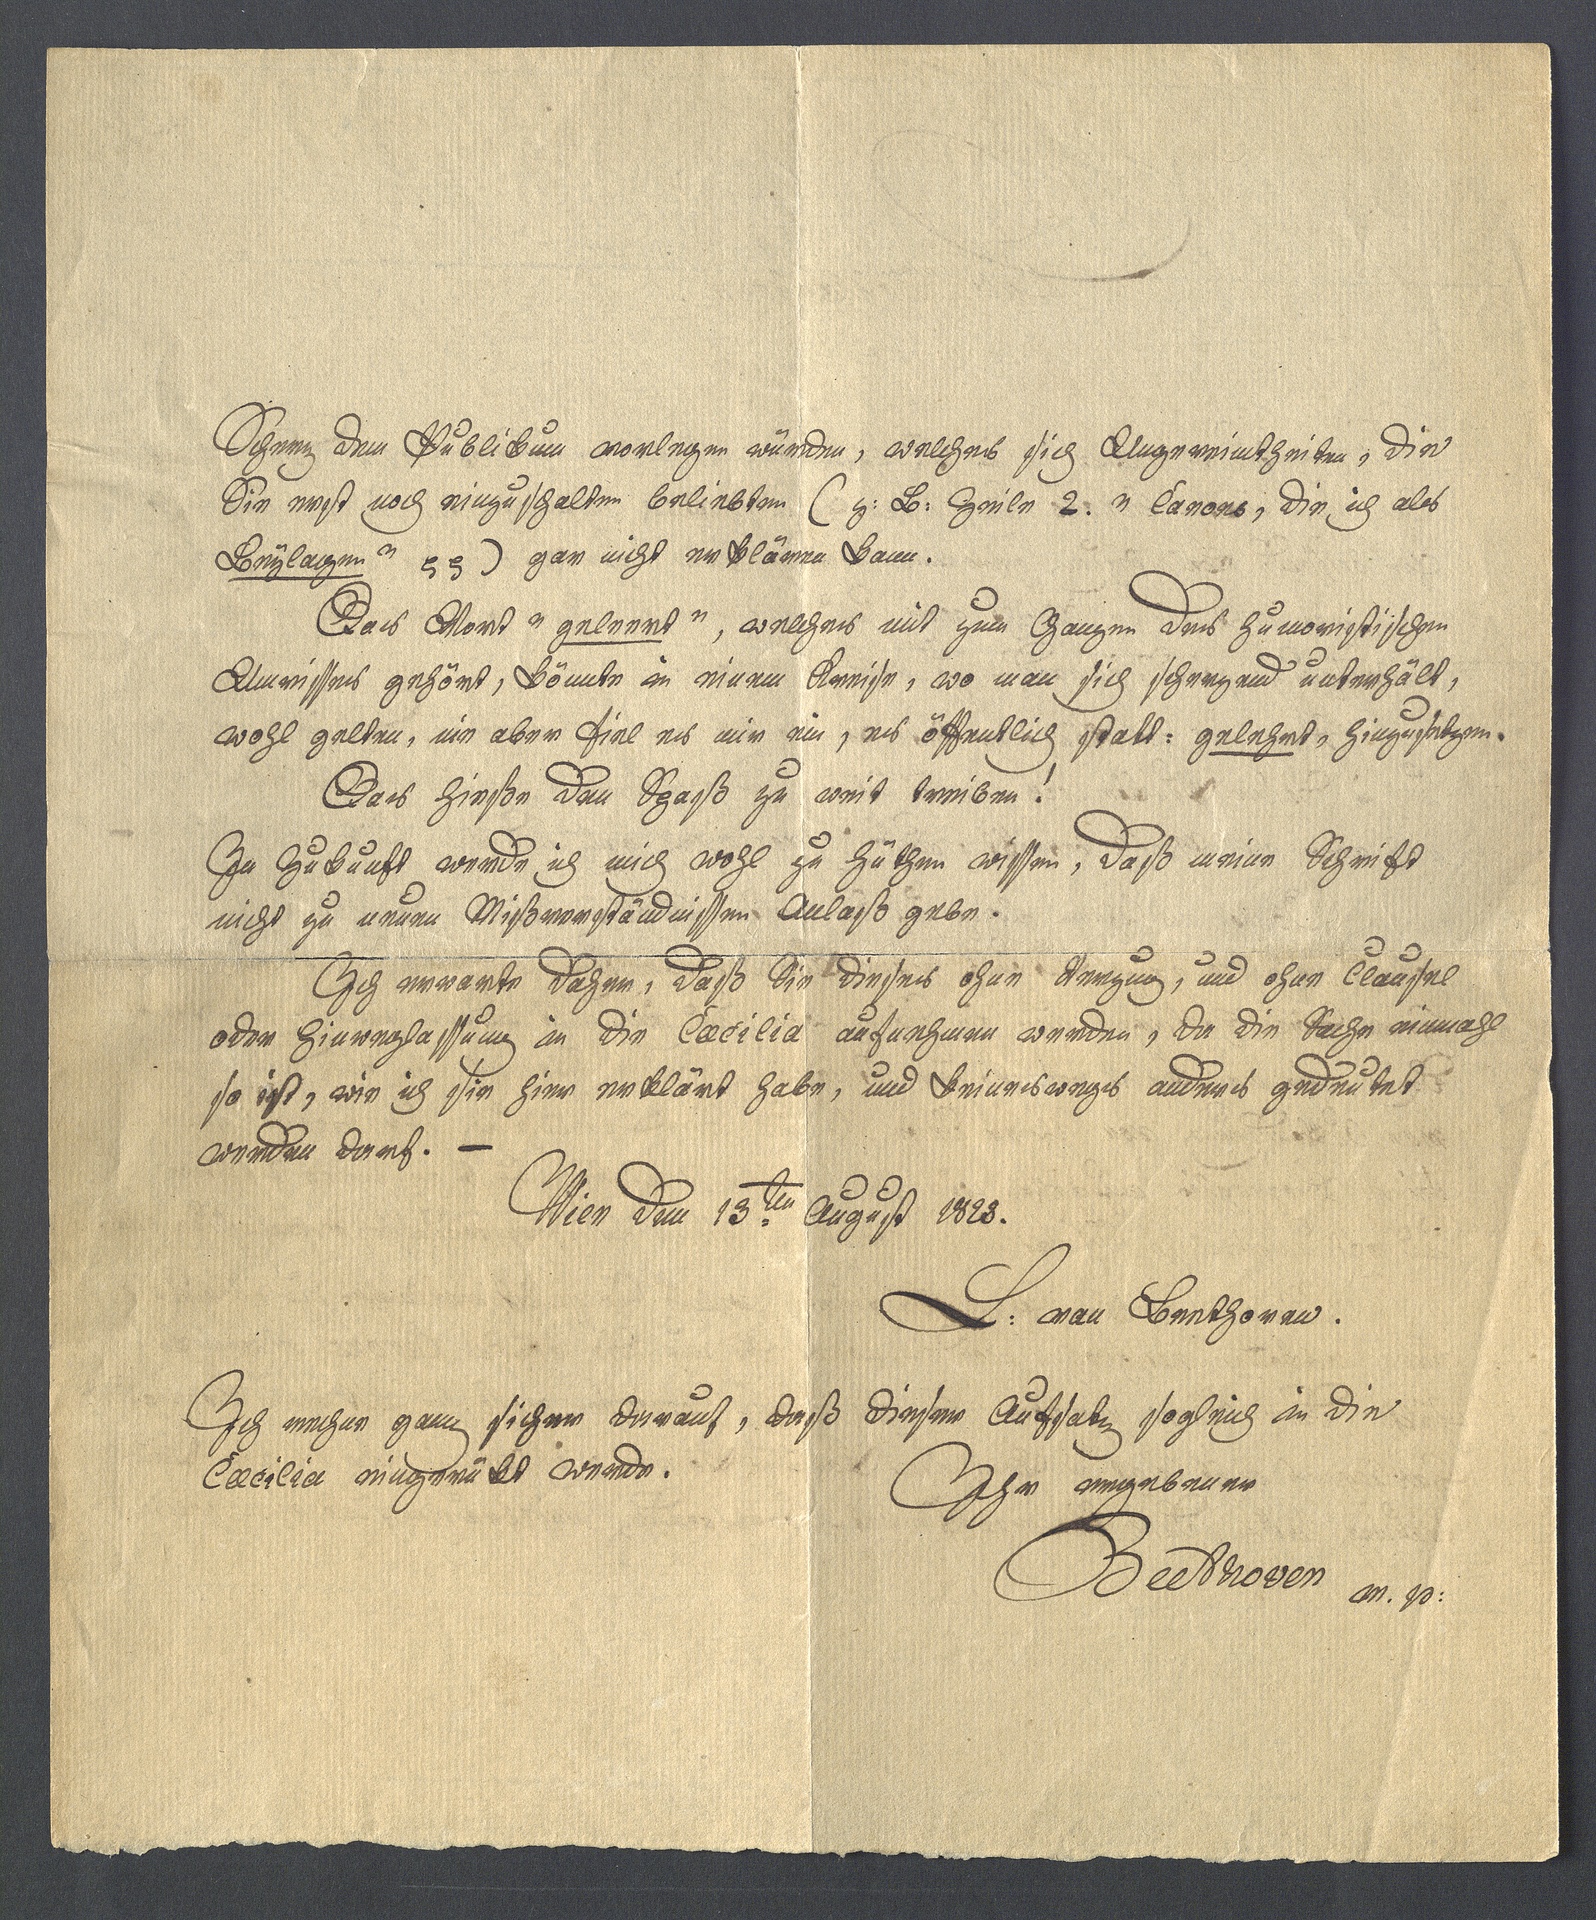 Scherz dem Publikum vorlegen würden, welches sich Ungereimtheiten, die
Sie erst noch einzuschalten beliebten (z: B: Zeile 2. " Canons, die ich als
Beÿlagen"
) gar nicht erklären kann.
Das Wort "geleert", welches mit zum Ganzen des humoristischen
Umrisses gehört, könnte in einem Kreise, wo man sich scherzend unterhält,
wohl gelten, nie aber fiel es mir ein, es öffentlich statt: gelehrt, hinzusetzen.
Das hieße den Spaß zu weit treiben!
In Zukunft werde ich mich wohl zu hüthen wissen, daß meine Schrift
nicht zu neuen Mißverständnissen Anlaß gebe.
Ich erwarte daher, daß Sie dieses ohne Verzug, und ohne Clausel
oder Hinweglassung in die Cæcilia aufnehmen werden, da die Sache einmahl
so ist, wie ich sie hier erklärt habe, und keineswegs anders gedeutet
werden darf. —
Wien den 13ten August 1825.
L: van Beethoven.
Ich rechne ganz sicher darauf, daß dieser Aufsatz sogleich in die
Cæcilia eingerükt werde.
Ihr ergebener
Beethoven m. p: